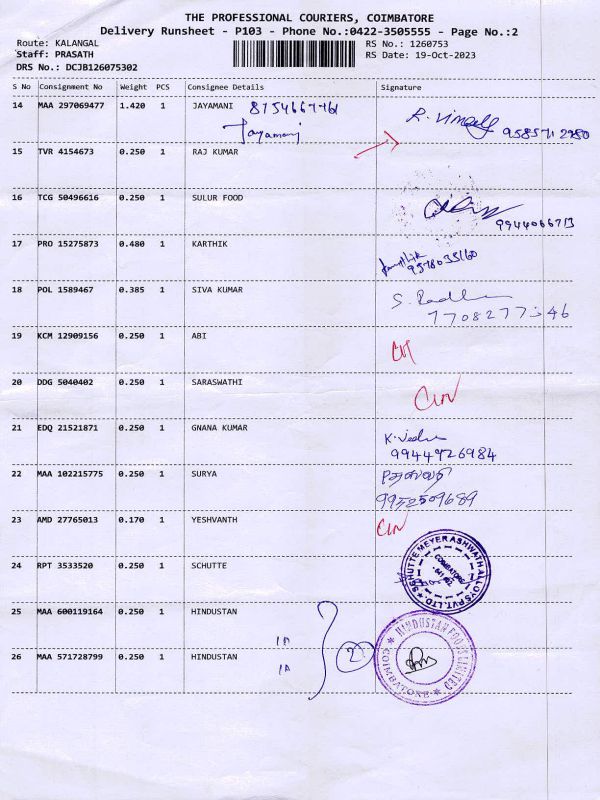 THE PROFESSIONAL COURIERS, COIMBATORE
Delivery Runsheet - P103 - Phone No.:0422-3505555 - Page No.:2
Route: KALANGAL
Staff: PRASATH
DRS No.: DCJB126075302
RS No.: 1260753
RS Date: 19-Oct-2023
S No Consignment No Weight PCS Consignee Details Signature
14 MAA 297069477 1.420 1 JAYAMANI
Jayamani
15 TVR 4154673 0.250 1 RAJ KUMAR
16 TCG 50496616 0.250 1 SULUR FOOD
9944066713
17 PRO 15275873 0.480 1 KARTHIK
9578035160
18 POL 1589467 0.385 1 SIVA KUMAR
19 KCM 12909156 0.250 1 ABI
20 DDG 5040402 0.250 1 SARASWATHI
21 EDQ 21521871 0.250 1 GNANA KUMAR
9944926984
22 MAA 102215775 0.250 1 SURYA
9952509689
23 AMD 27765013 0.170 1 YESHVANTH
24 RPT 3533520 0.250 1 SCHUTTE
SCHUTTE MEYER ASHWATH ALLOYS PVT. LTD.
COIMBATORE
25 MAA 600119164 0.250 1 HINDUSTAN
26 MAA 571728799 0.250 1 HINDUSTAN
2
HINDUSTAN LIMITED
COIMBATORE